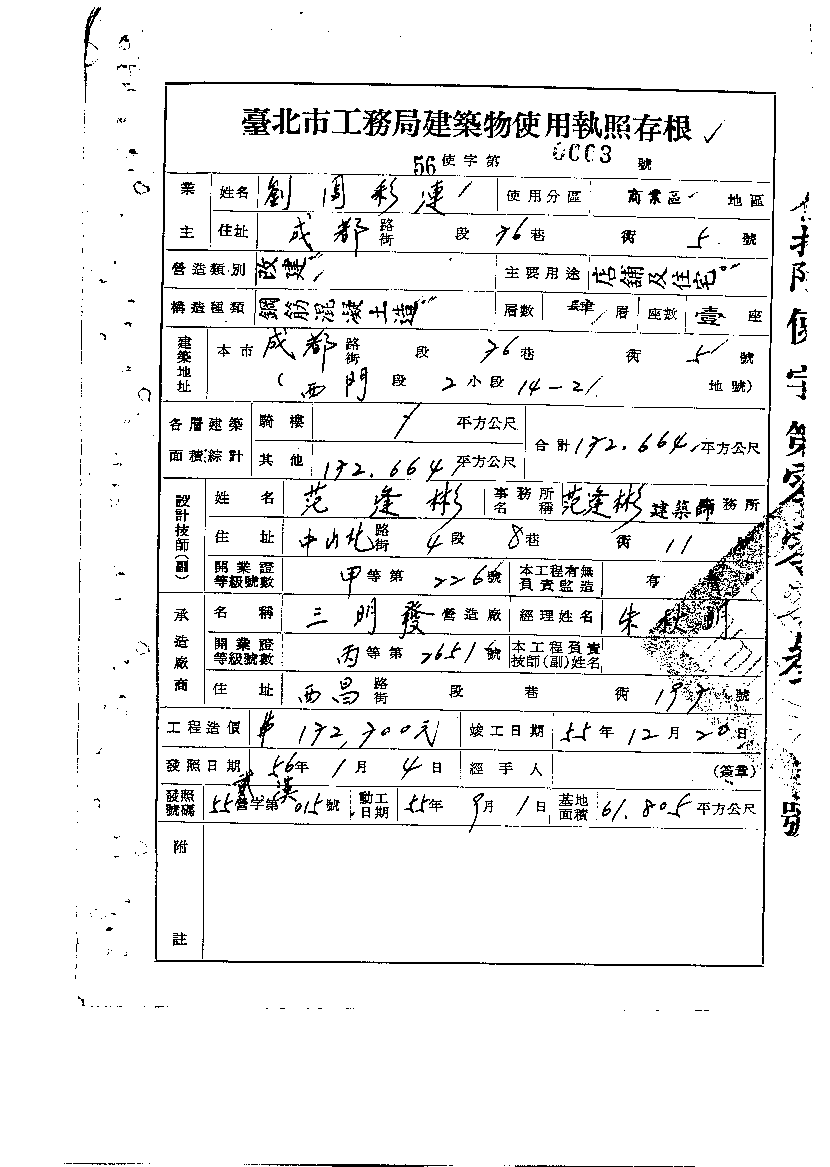 臺北市工務局建築物使用執照存根
56使字第 0003 號
業主 姓名 劉 彩蓮 使用分區 商業區 地區
住址 成都 路街 段 76巷 衖 5 號
營造類別 改建 主要用途 店舖及住宅
構造種類 鋼筋混凝土造 層數 肆 層 座數 壹 座
建築地址 本市 成都 路街 段 76巷 衖 5 號
(西門 段 2小段 14-21 地號)
各層建築面積綜計 騎樓 平方公尺 合計 172.664 平方公尺
其他 172.664 平方公尺
設計技師(副) 姓名 范逢彬 事務所名稱 范逢彬建築師事務所
住址 中山北 路街 4段 8巷 衖 11
開業證等級號數 甲等第 226號 本工程有無負責監造 有
承造廠商 名稱 三明發 營造廠 經理姓名 朱秋明
開業證等級號數 丙等第 號 本工程負責技師(副)姓名
住址 西昌 路街 段 巷 衖 197 號
工程造價 172,700元 竣工日期 55年12月20日
發照日期 56年1月4日 經手人 (簽章)
發照號碼 55營字第 015號 動工日期 55年9月1日 基地面積 61.805 平方公尺
附註